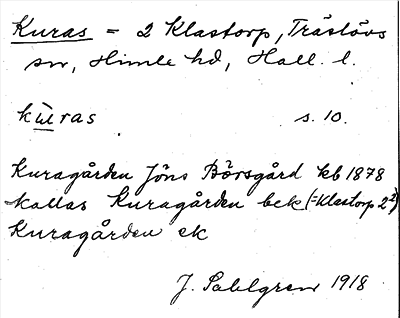 Kuras = 2 Klastorp, Träslövs
sn, Himle hd, Hall. l.
ku̲ras s. 10.
Kuragården Jöns Börsgård kb 1878
kallas Kuragården bek (=Klastorp 2²)
Kuragården ek
J. Sahlgren 1918